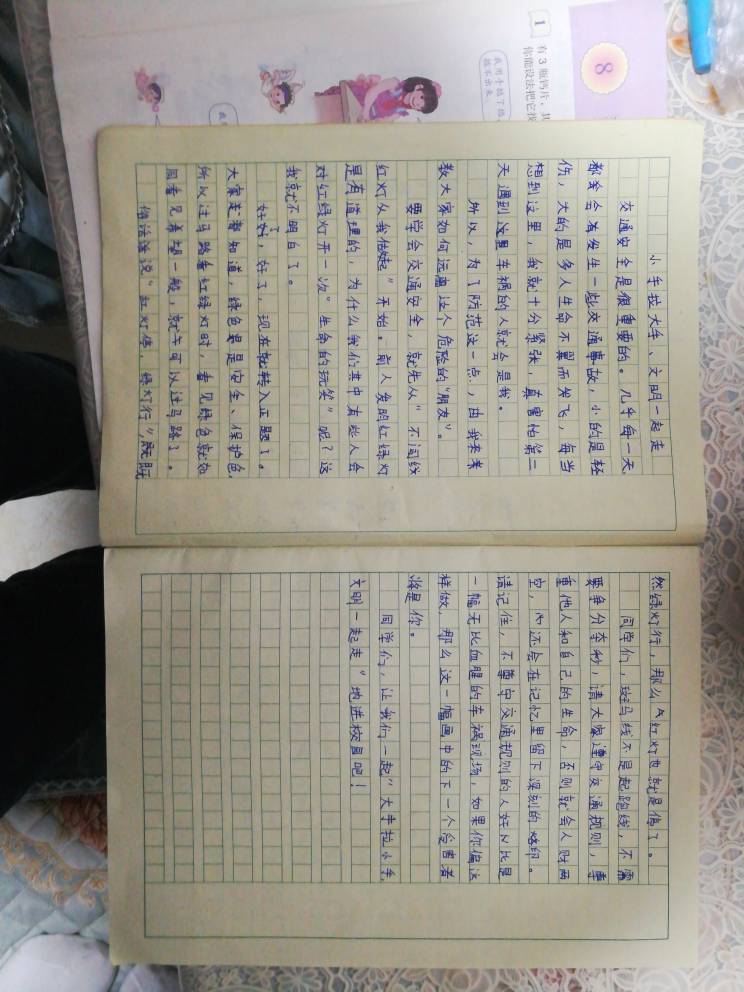 小手拉大手、文明一起走
交通安全是很重要的。几乎每一天
都会会有发生一些交通事故，小的是轻
伤，大的是多人生命不翼而飞，每当
想到这里，我就十分紧张，真害怕第二
天遇到这里车祸的人就会是我。
所以，为了防范这一点，由我来考
教大家如何远离这个危险的“朋友”。
要学会交通安全，就先从“不闯线
红灯从我做起”开始。前人发明红绿灯
是有道理的，为什么我们其中有些人会
对红绿灯开一次“生命的玩笑”呢？这
我就不明白了。
好了，好了，现在就转入正题了。
大家走都知道，绿色是是安全、保护色，
所以过马路看红绿灯时，看见绿色就如
同看见希望一般，就乍可以过马路了。
俗话话说“红灯停，绿灯行”，既既
然绿灯行，那么气红灯也就是停了。
同学们，斑马线不是起跑线，不需
要争分夺秒，请大家遵守交通规则，尊
重他人和自己的生命，否则就会人财两
空，内还会在记忆里留下深刻的烙印。
请记住，不尊守交通规则的人好N比是
一幅无比血腥的车祸现场，如果你偏这
样做，那么这一幅画中的下一个受害者
将是你。
同学们，让我们一起“大手拉小手，
文明一起走”地进校园吧！
8
1
有3瓶钙片，其
你能设法把它找
我用手掂了掂
掂不出来。